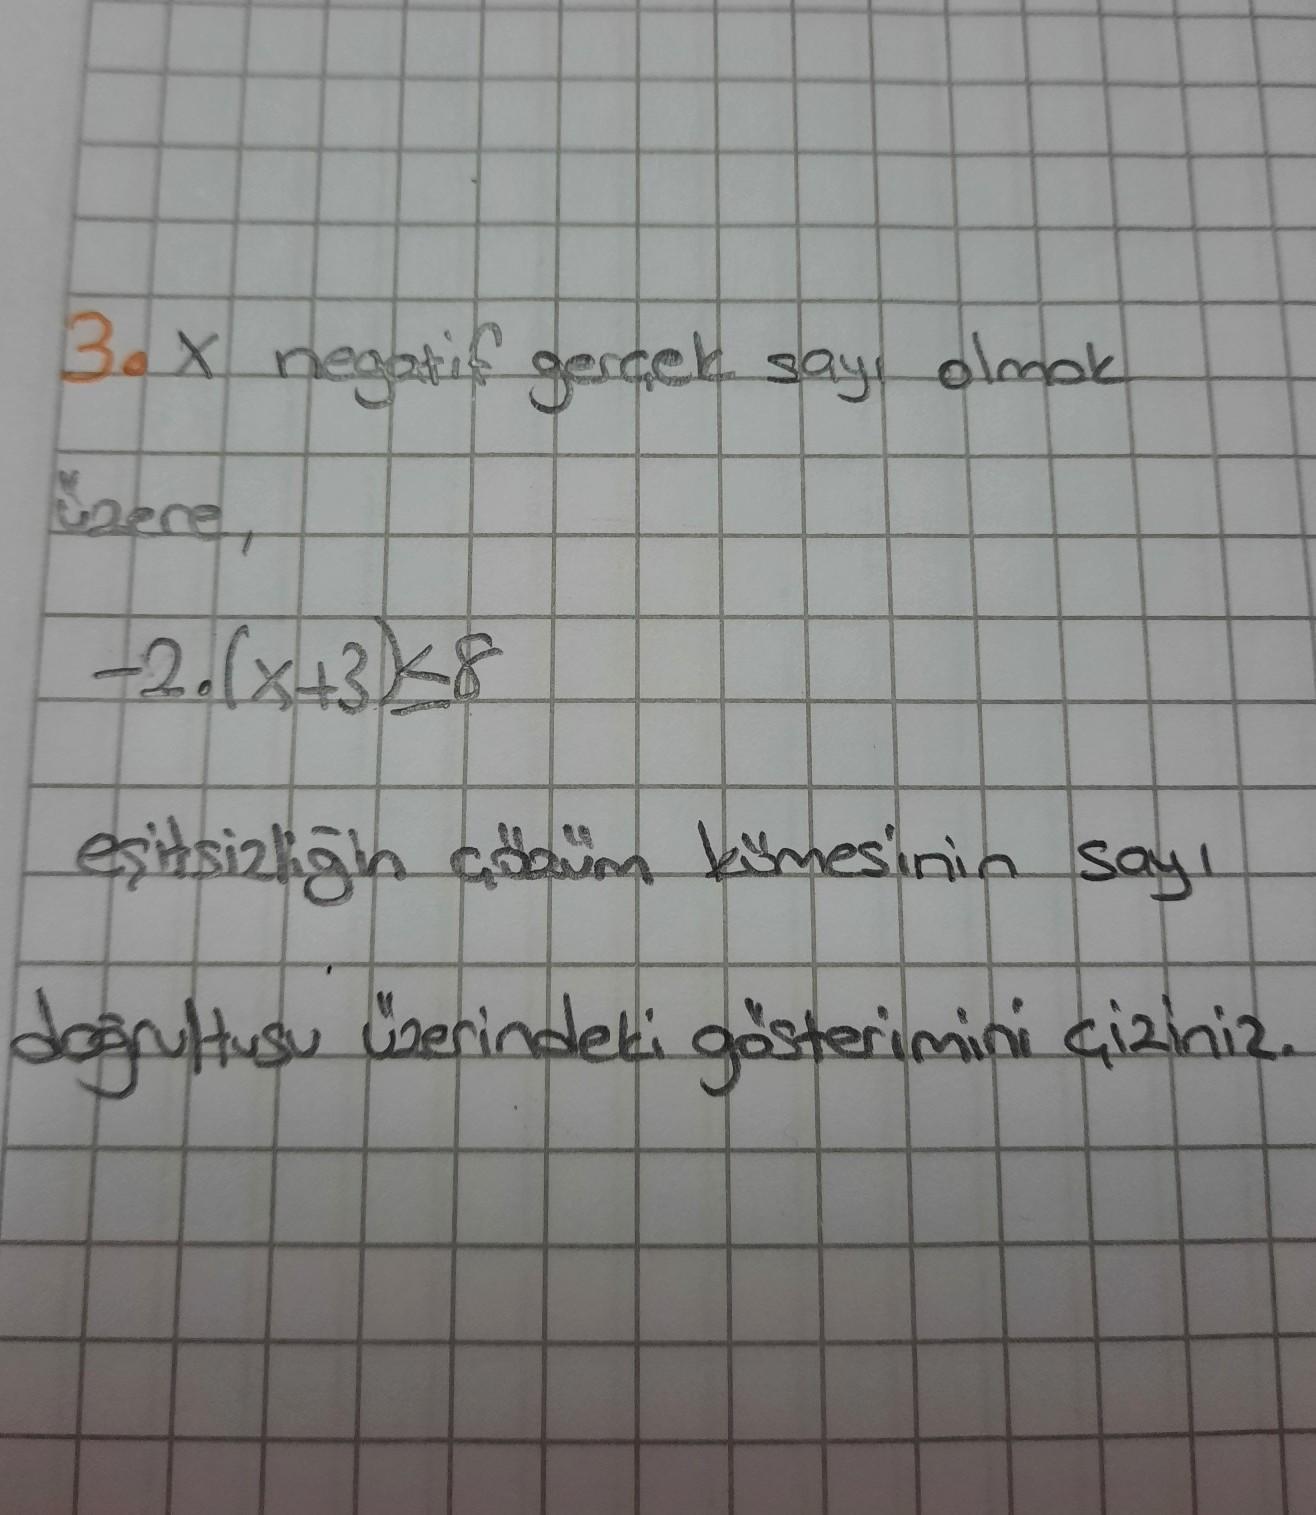 3. x negatif gerçek sayı olmak
üzere,
-2.(x+3)≤8
eşitsizliğin çözüm kümesinin sayı
doğrultusu üzerindeki gösterimini çiziniz.